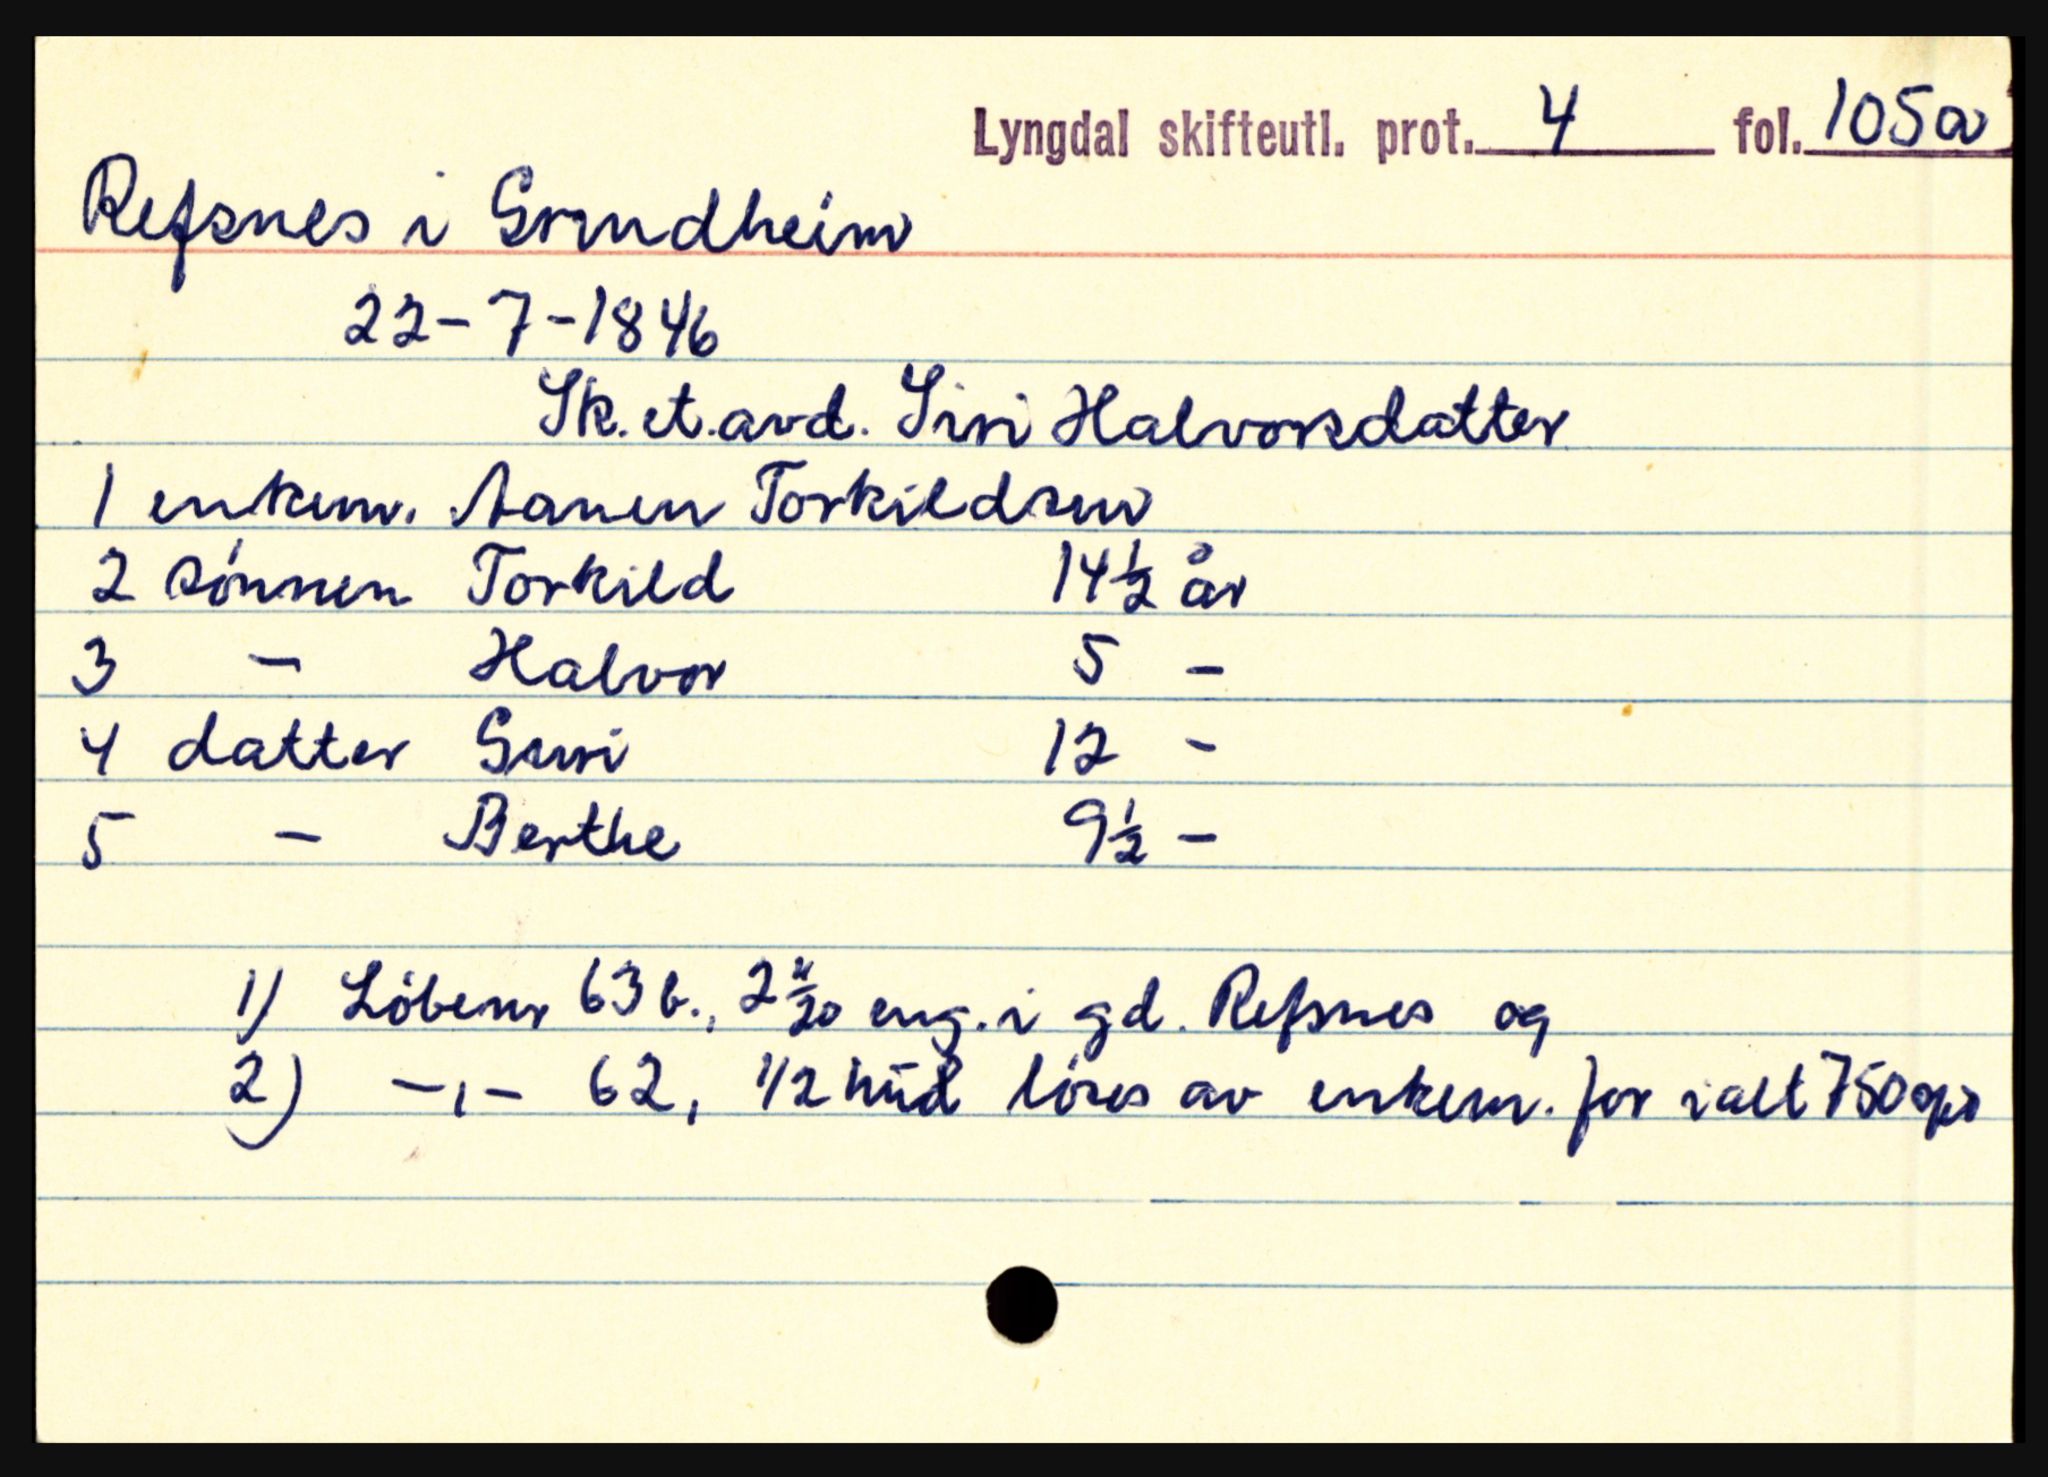 Lyngdal skifteutl. prot. 4 fol. 105a
Refsnes i Grindheim
22-7-1846
Sk. et. avd. Siri Halvorsdatter
1 enkem. Aanen Torkildsen
2 sönnen Torkild 14 1/2 år
3 - Halvor 5 -
4 datter Guri 12 -
5 - Berthe 9 1/2 -
1) Löbenr 63 b., 2 eng. i gd. Refsnes og
2) -,- 62, 1/2 hud löses av enkem. for ialt 750 spd